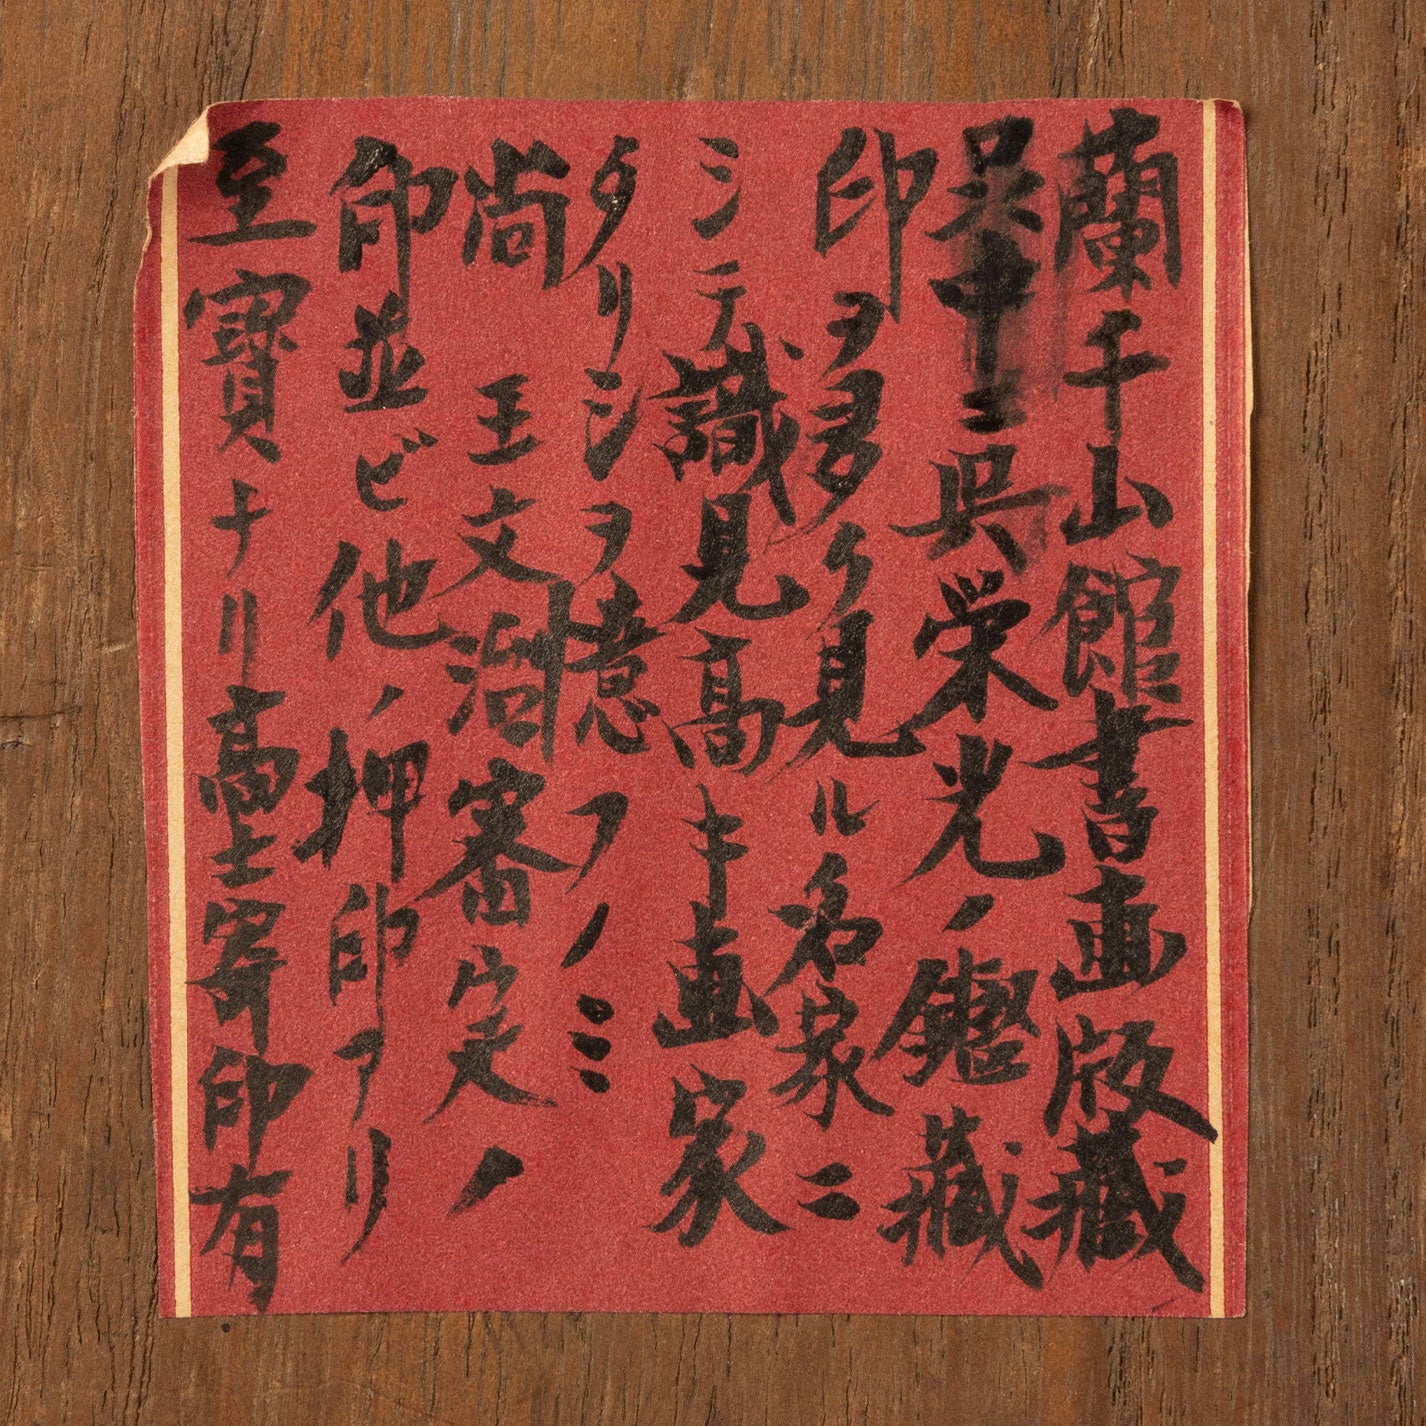 蘭千山館書画版藏
呉中ニ呉栄光ノ鑑藏
印ヲ多ク見ル名家ニ
シテ識見高キ画家
タリシヲ憶フノミ
尚 王文治審定ノ
印並ビ他ノ押印アリ
至寶ナリ高士寄印有